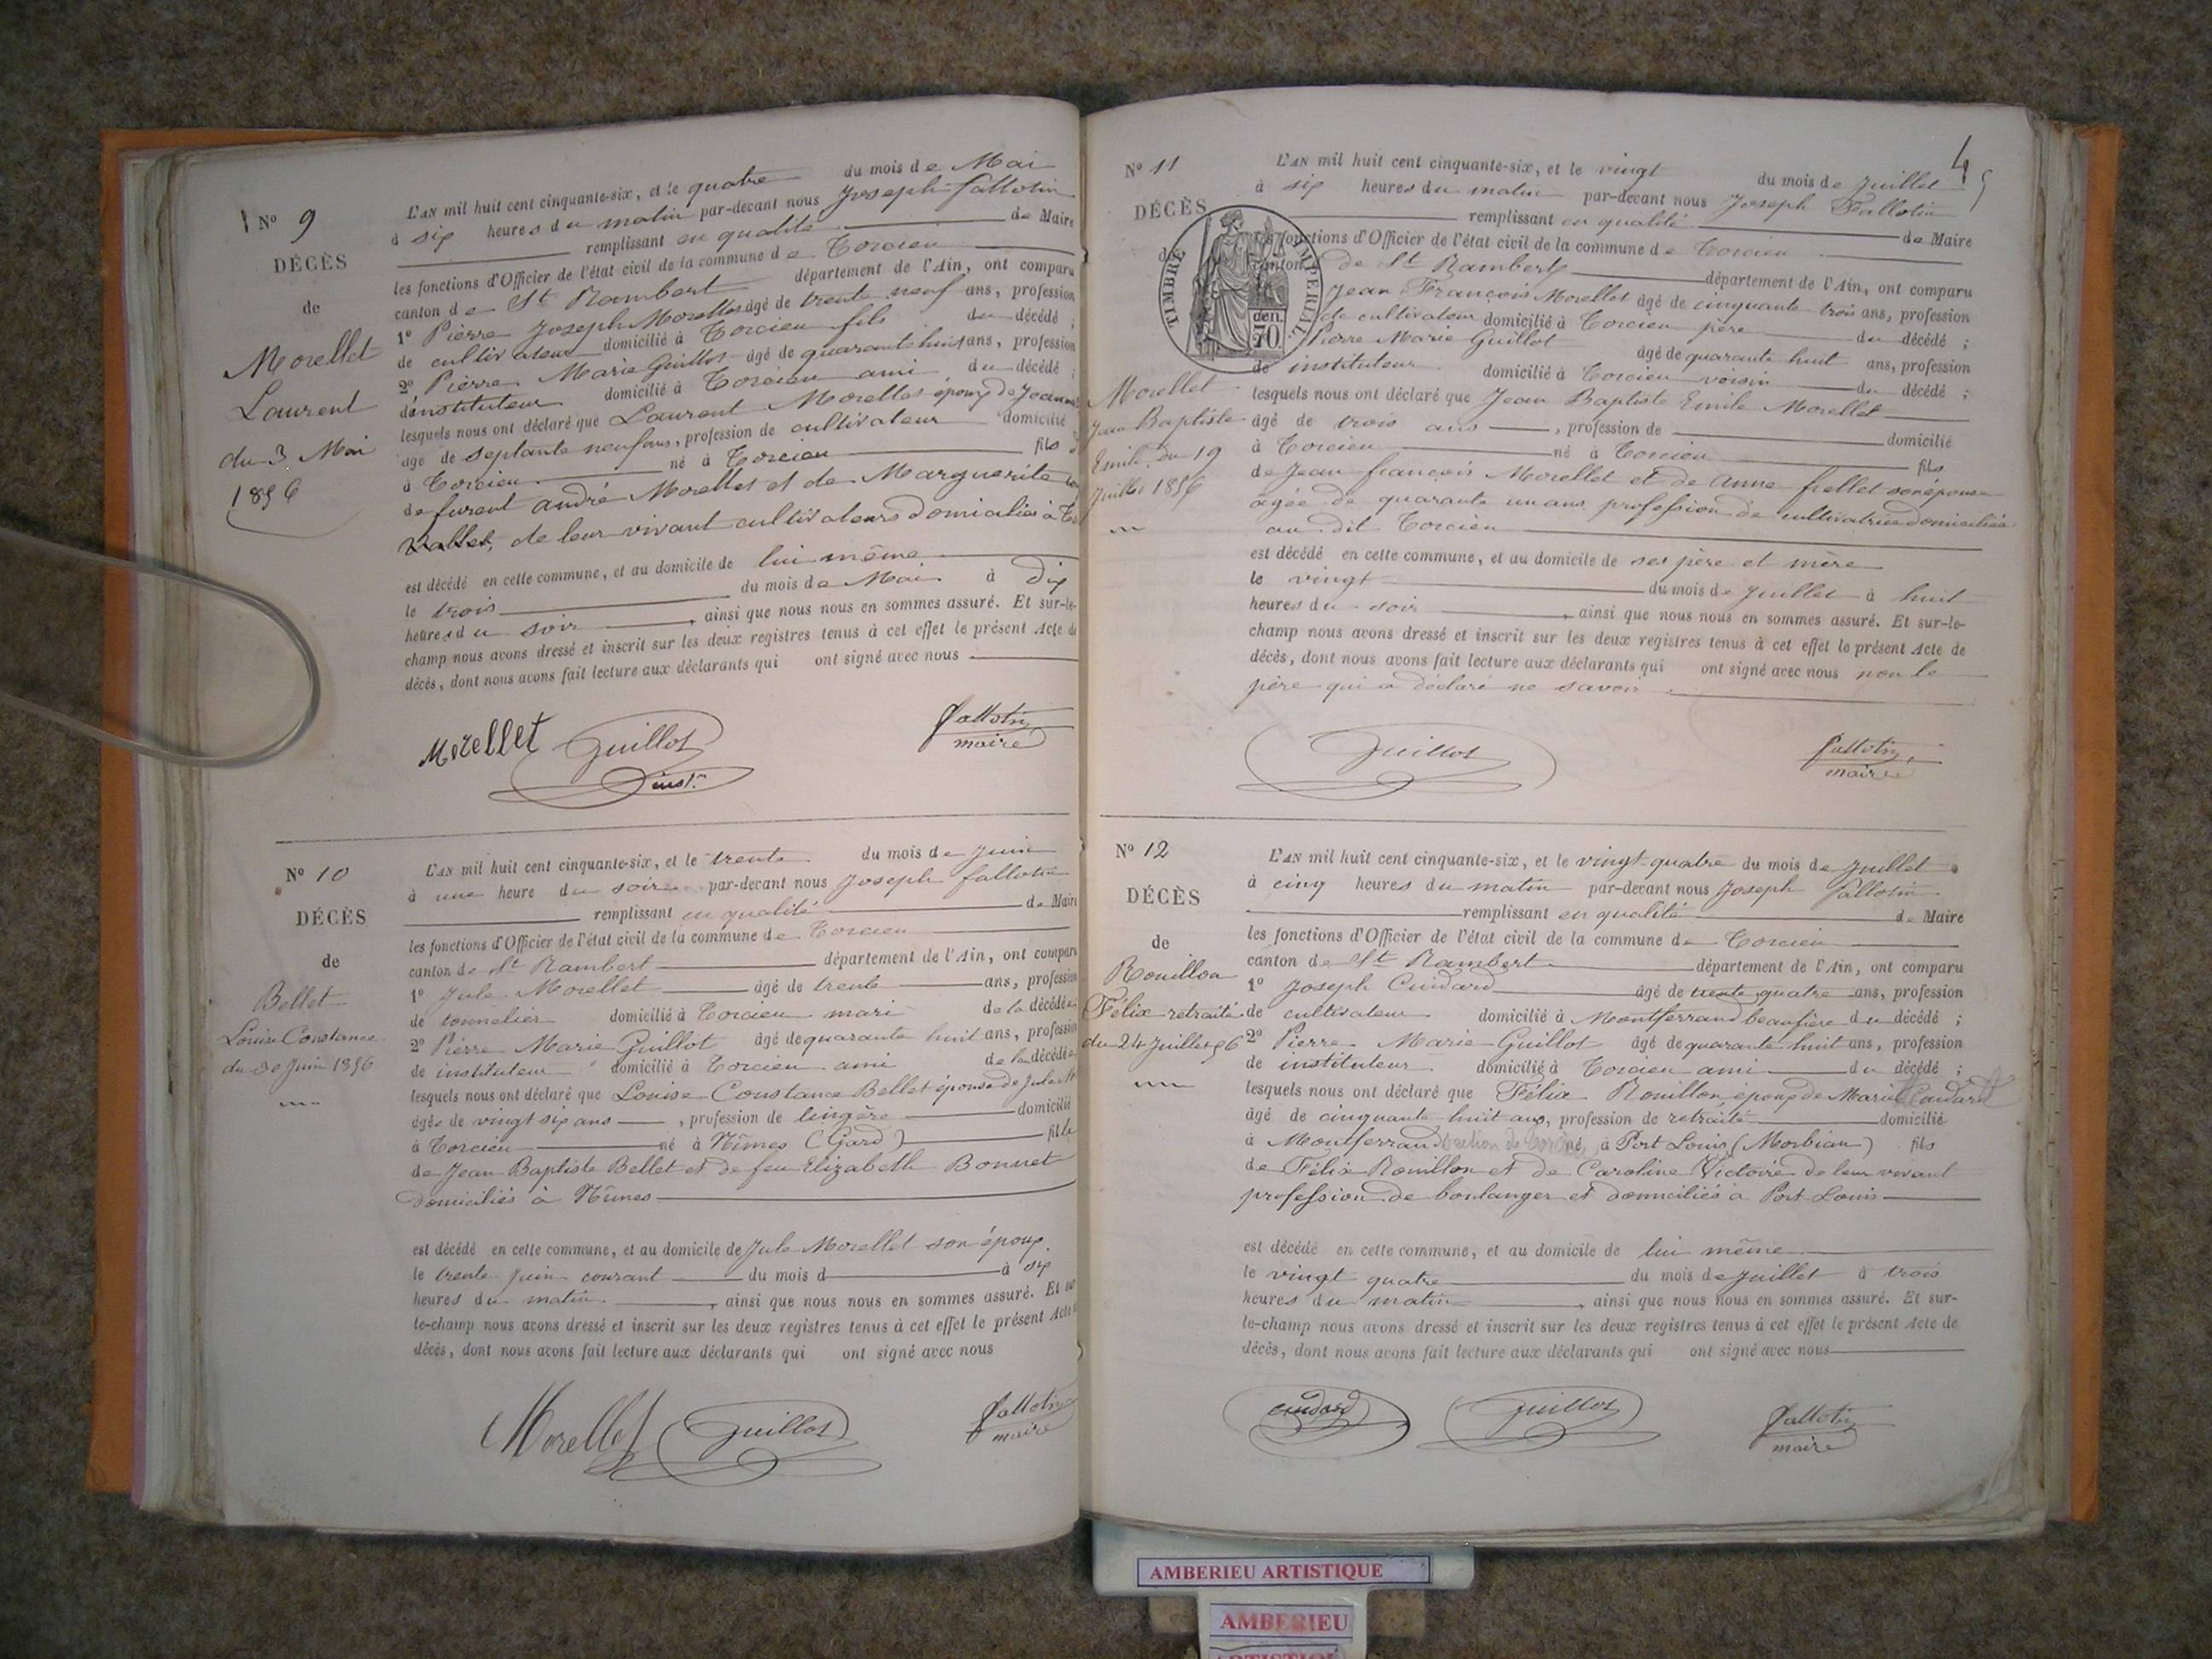 N° 9
DÉCÈS
de
Morellet
Laurent
du 3 Mai
1856
L'AN mil huit cent cinquante-six, et le quatre du mois de Mai
à six heures du matin par-devant nous Joseph fallotin
remplissant en qualité de Maire
les fonctions d'Officier de l'état civil de la commune de Torcieu
canton de St Rambert département de l'Ain, ont comparu
1° Pierre Joseph Morellet âgé de trente neuf ans, profession
de cultivateur domicilié à Torcieu fils du décédé ;
2° Pierre Marie Guillot âgé de quarante huit ans, profession
d'instituteur domicilié à Torcieu ami du décédé ;
lesquels nous ont déclaré que Laurent Morellet époux de Jeanne
âgé de septante neuf ans, profession de cultivateur domicilié
à Torcieu né à Torcieu fils
de furent andré Morellet et de Marguerite
Vallet, de leur vivant cultivateurs domiciliés à
est décédé en cette commune, et au domicile de lui même
le trois du mois de Mai à dix
heures du soir, ainsi que nous nous en sommes assuré. Et sur-le-
champ nous avons dressé et inscrit sur les deux registres tenus à cet effet le présent Acte de
décès, dont nous avons fait lecture aux déclarants qui ont signé avec nous
Morellet Guillot fallotin
inst.r maire
N° 10
DÉCÈS
de
Bellet
Louise Constance
du 30 Juin 1856
L'AN mil huit cent cinquante-six, et le trente du mois de Juin
à une heure du soir par-devant nous Joseph fallotin
remplissant en qualité de Maire
les fonctions d'Officier de l'état civil de la commune de Torcieu
canton de St Rambert département de l'Ain, ont comparu
1° Jule Morellet âgé de trente ans, profession
de tonnelier domicilié à Torcieu mari de la décédée
2° Pierre Marie Guillot âgé de quarante huit ans, profession
de instituteur domicilié à Torcieu ami de la décédée
lesquels nous ont déclaré que Louise Constance Bellet épouse de Jule
âgée de vingt six ans, profession de lingère domicilié
à Torcieu né à Nîmes (Gard) fille
de Jean Baptiste Bellet et de feu Elizabeth Bonnet
domiciliés à Nîmes
est décédé en cette commune, et au domicile de Jule Morellet son époux.
le trente Juin courant du mois d à six
heures du matin, ainsi que nous nous en sommes assuré. Et sur
le-champ nous avons dressé et inscrit sur les deux registres tenus à cet effet le présent Acte
décès, dont nous avons fait lecture aux déclarants qui ont signé avec nous
Morellet Guillot fallotin
maire
4
5
N° 11
DÉCÈS
TIMBRE IMPÉRIAL
70
Morellet
Jean Baptiste
Emile. Du 19
Juillet 1856
L'AN mil huit cent cinquante-six, et le vingt du mois de Juillet
à six heures du matin par-devant nous Joseph Fallotin
remplissant en qualité de Maire
les fonctions d'Officier de l'état civil de la commune de Torcieu
canton de St Rambert département de l'Ain, ont comparu
Jean François Morellet âgé de cinquante trois ans, profession
de cultivateur domicilié à Torcieu père du décédé ;
Pierre Marie Guillot âgé de quarante huit ans, profession
de instituteur domicilié à Torcieu voisin du décédé ;
lesquels nous ont déclaré que Jean Baptiste Emile Morellet
âgé de trois ans, profession de domicilié
à Torcieu né à Torcieu fils
de Jean françois Morellet et de anne frellet son épouse
agée de quarante un ans profession de cultivatrice domiciliée
au dit Torcieu
est décédé en cette commune, et au domicile de ses père et mère
le vingt du mois de Juillet à huit
heures du soir, ainsi que nous nous en sommes assuré. Et sur-le-
champ nous avons dressé et inscrit sur les deux registres tenus à cet effet le présent Acte de
décès, dont nous avons fait lecture aux déclarants qui ont signé avec nous non le
père qui a déclaré ne savoir.
Guillot fallotin
maire
N° 12
DÉCÈS
de
Rouillon
Félix retraité
du 24 Juillet 56
L'AN mil huit cent cinquante-six, et le vingt-quatre du mois de Juillet
à cinq heures du matin par-devant nous Joseph fallotin
remplissant en qualité de Maire
les fonctions d'Officier de l'état civil de la commune de Torcieu
canton de St Rambert département de l'Ain, ont comparu
1° Joseph Cuidard âgé de trente quatre ans, profession
de cultivateur domicilié à Montferrand beaufrère du décédé ;
2° Pierre Marie Guillot âgé de quarante huit ans, profession
de instituteur domicilié à Torcieu ami du décédé ;
lesquels nous ont déclaré que Félix Rouillon époux de Marie Cuidard
âgé de cinquante huit ans, profession de retraité domicilié
à Montferrand section de Torcieu né à Port Louis (Morbian) fils
de Félix Rouillon et de Caroline Victoire de leur vivant
profession de boulanger et domiciliés à Port Louis
est décédé en cette commune, et au domicile de lui même
le vingt quatre du mois de Juillet à trois
heures du matin, ainsi que nous nous en sommes assuré. Et sur-
le-champ nous avons dressé et inscrit sur les deux registres tenus à cet effet le présent Acte de
décès, dont nous avons fait lecture aux déclarants qui ont signé avec nous
cuidard Guillot fallotin
maire
AMBERIEU ARTISTIQUE
AMBERIEU
ARTISTIQUE